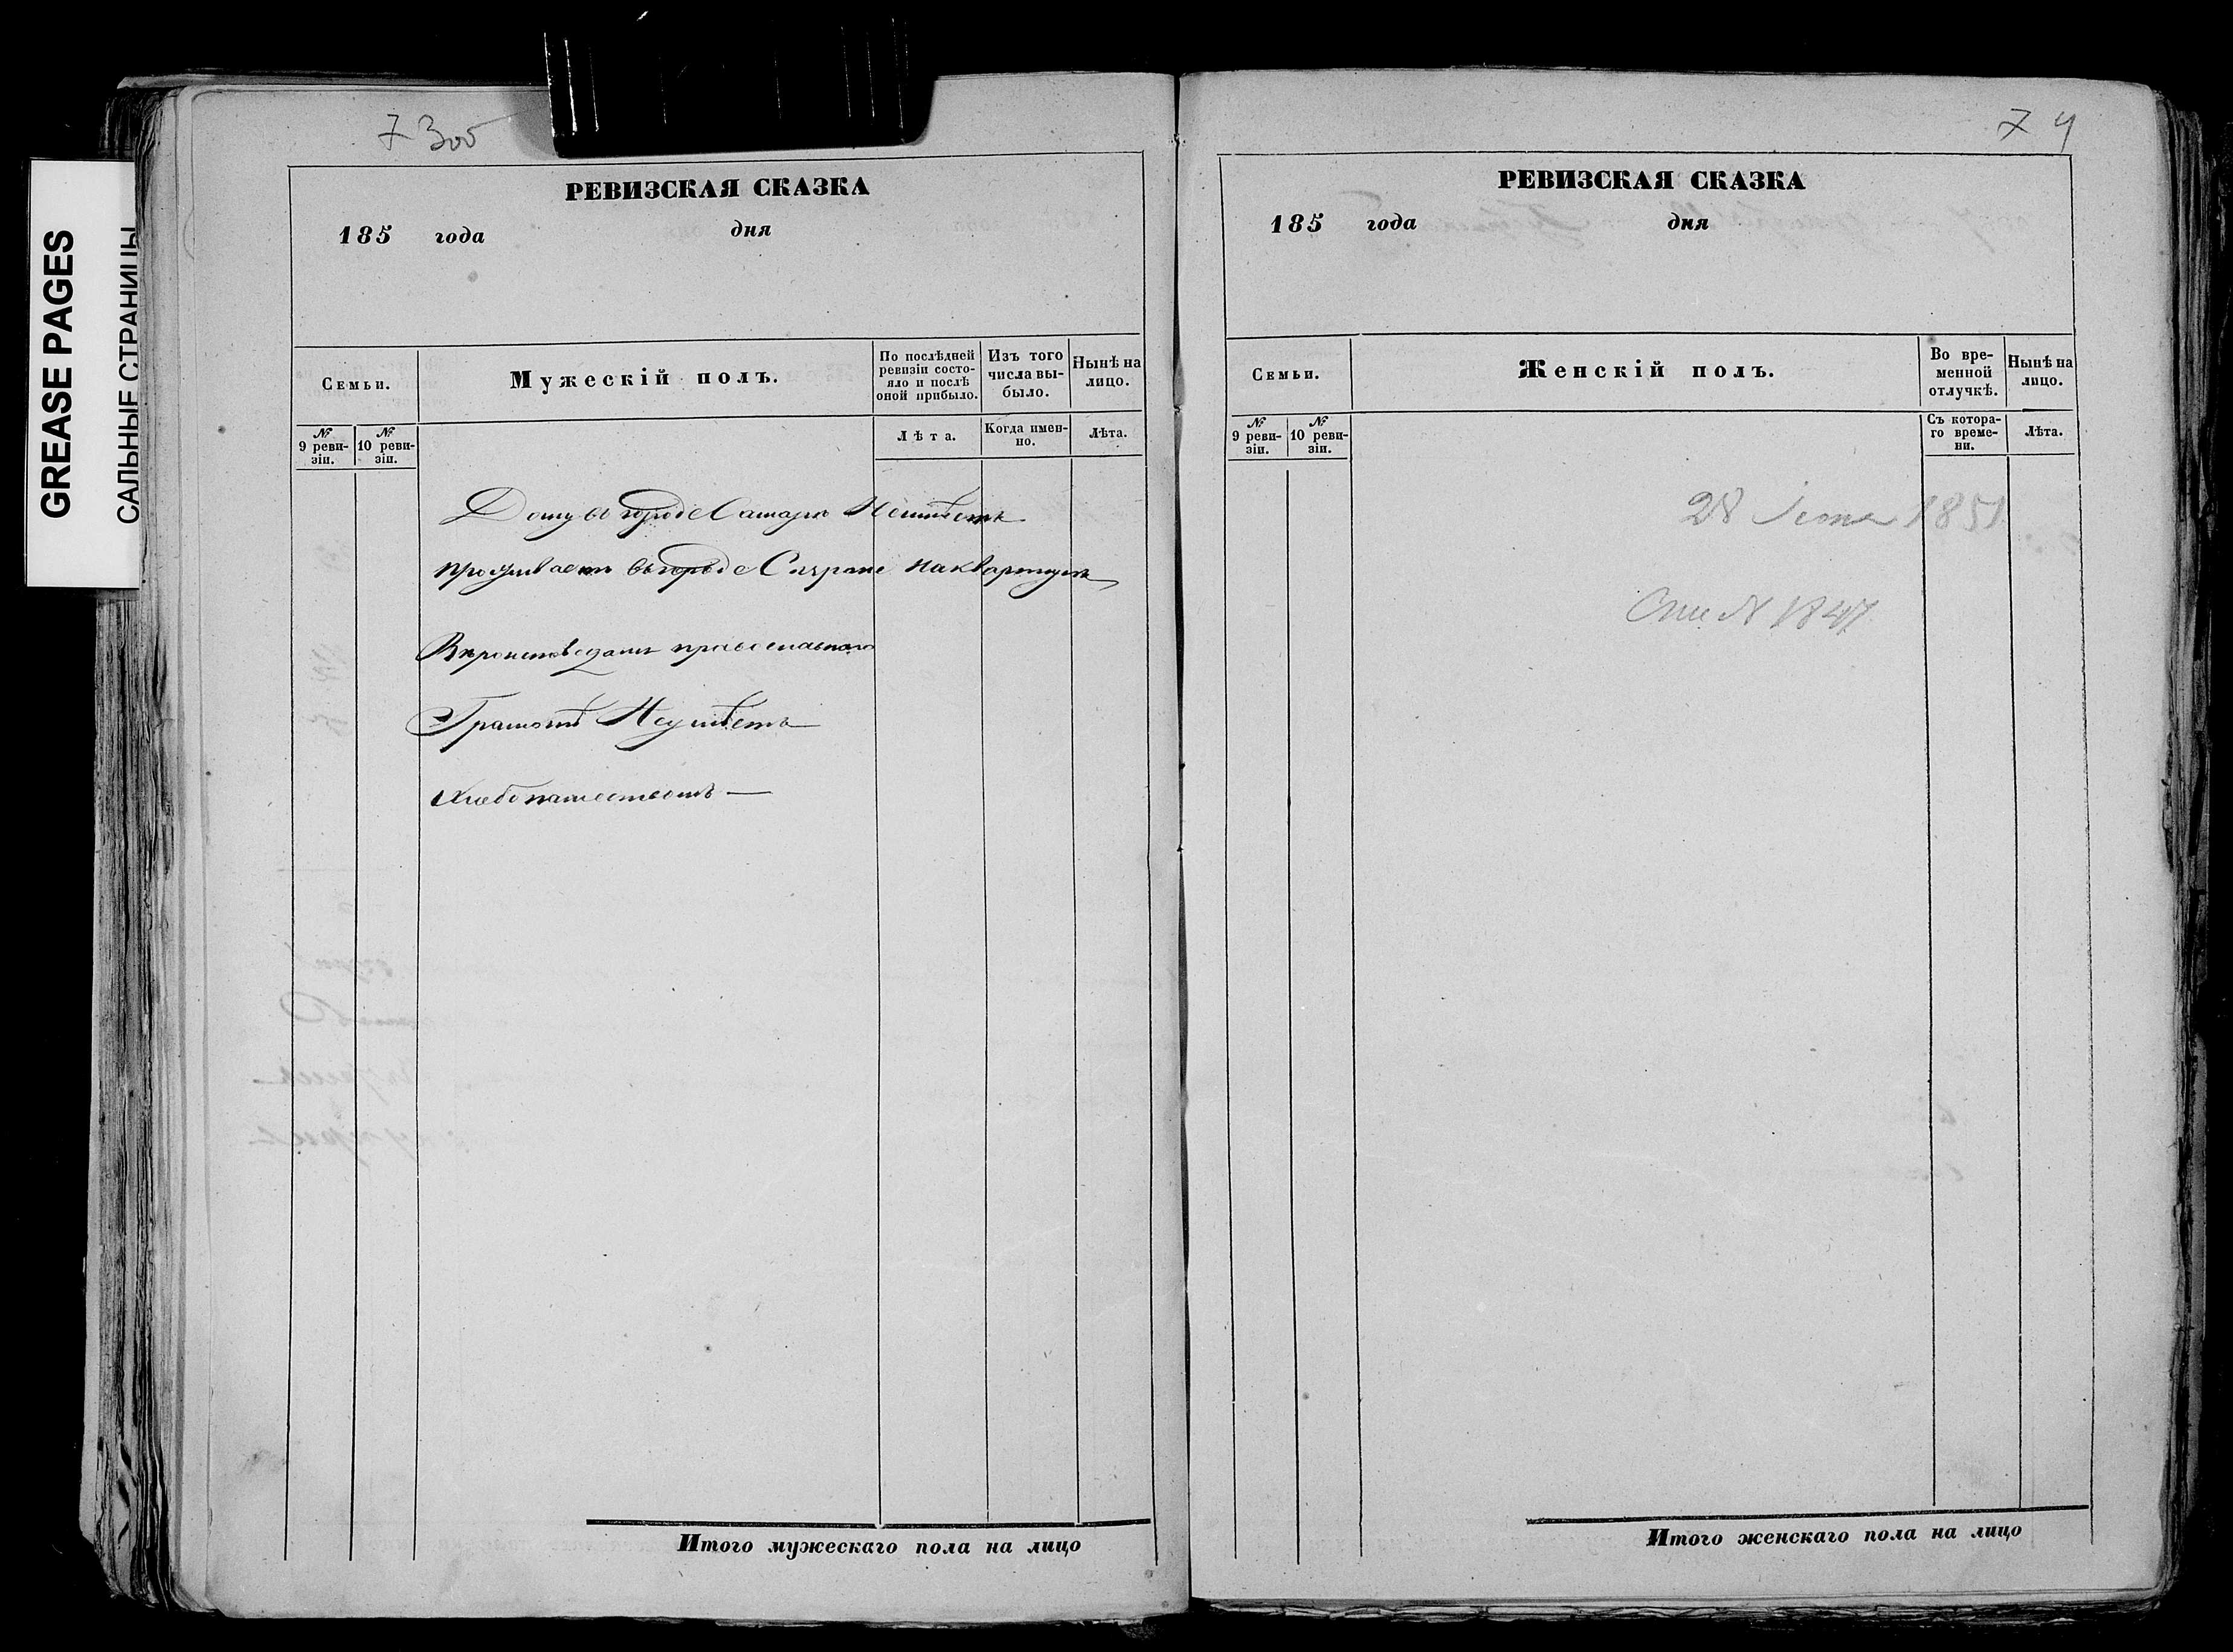 GREASE PAGES
САЛЬНЫЕ СТРАНИЦЫ
73об
РЕВИЗСКАЯ СКАЗКА
185 года дня
Семьи.
Мужескій полъ.
По послѣдней ревизіи состояло и послѣ оной прибыло.
Изъ того числа выбыло.
Нынѣ на лицо.
№ 9 ревизіи.
№ 10 ревизіи.
Лѣта.
Когда именно.
Лѣта.
Дому въ городе Самаре Неимѣетъ
проживаетъ въ городе Сызране на квартире
Вероисповедания православнаго
Грамотѣ Неумѣетъ
Хлебопашествомъ —
Итого мужескаго пола на лицо
74
РЕВИЗСКАЯ СКАЗКА
185 года дня
Семьи.
Женскій полъ.
Во временной отлучкѣ.
Нынѣ на лицо.
№ 9 ревизіи.
№ 10 ревизіи.
Съ котораго времени.
Лѣта.
28 1851
№ 1847
Итого женскаго пола на лицо